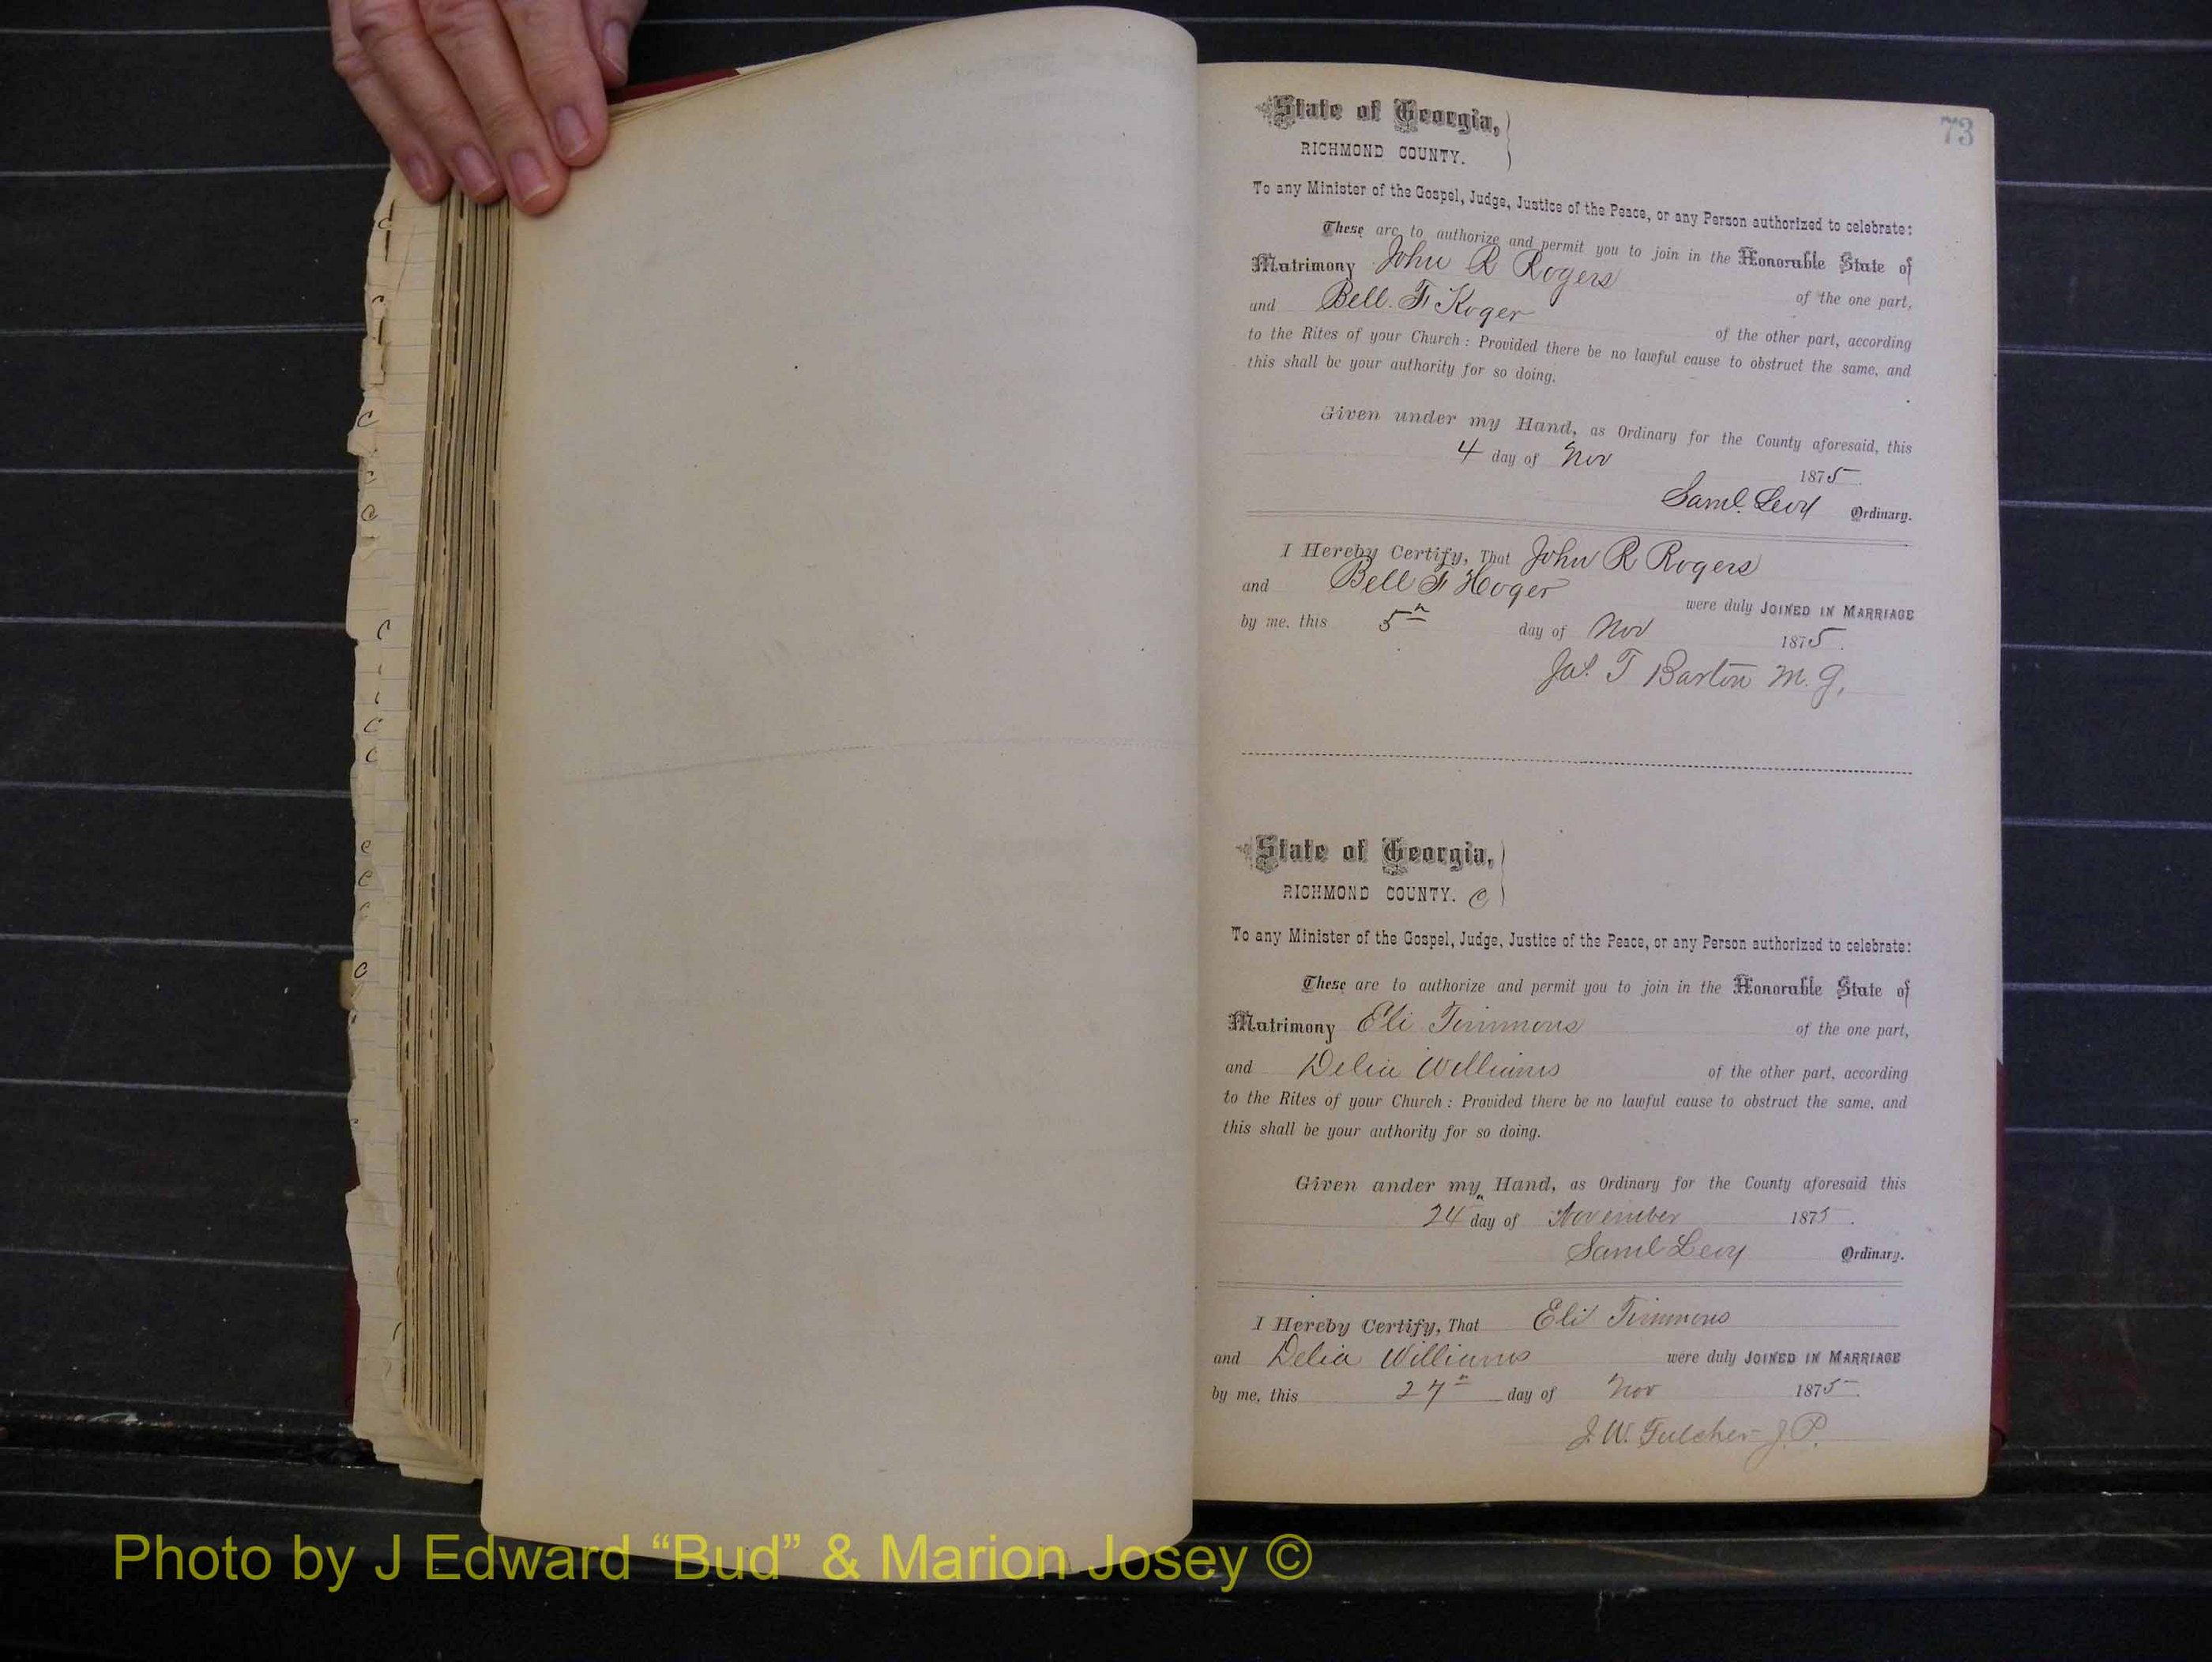 73
State of Georgia,
RICHMOND COUNTY.
To any Minister of the Gospel, Judge, Justice of the Peace, or any Person authorized to celebrate:
These are to authorize and permit you to join in the Honorable State of
Matrimony John R Rogers of the one part,
and Bell. F Koger of the other part, according
to the Rites of your Church: Provided there be no lawful cause to obstruct the same, and
this shall be your authority for so doing.
Given under my Hand, as Ordinary for the County aforesaid, this
4 day of Nov 1875.
Saml. Levy Ordinary.
I Hereby Certify, That John R Rogers
and Bell F Hoger were duly JOINED IN MARRIAGE
by me, this 5th day of Nov 1875.
Jas. T Barton M. G,
State of Georgia,
RICHMOND COUNTY. C
To any Minister of the Gospel, Judge, Justice of the Peace, or any Person authorized to celebrate:
These are to authorize and permit you to join in the Honorable State of
Matrimony Eli Timmons of the one part,
and Delia Williams of the other part, according
to the Rites of your Church: Provided there be no lawful cause to obstruct the same, and
this shall be your authority for so doing.
Given under my Hand, as Ordinary for the County aforesaid this
24th day of November 1875.
Saml Levy Ordinary.
I Hereby Certify, That Eli Timmons
and Delia Williams were duly JOINED IN MARRIAGE
by me, this 27th day of Nov 1875.
J. W. Fulcher J. P.
Photo by J Edward “Bud” & Marion Josey ©